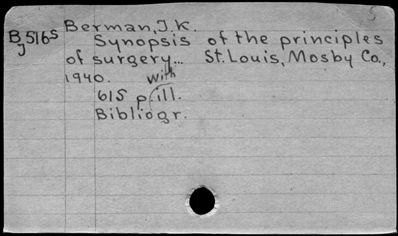 Berman, J.K.
BJ516s Synopsis of the principles
of surgery... St. Louis, Mosby Co.,
1940. with
615 p. ill.
Bibliogr.